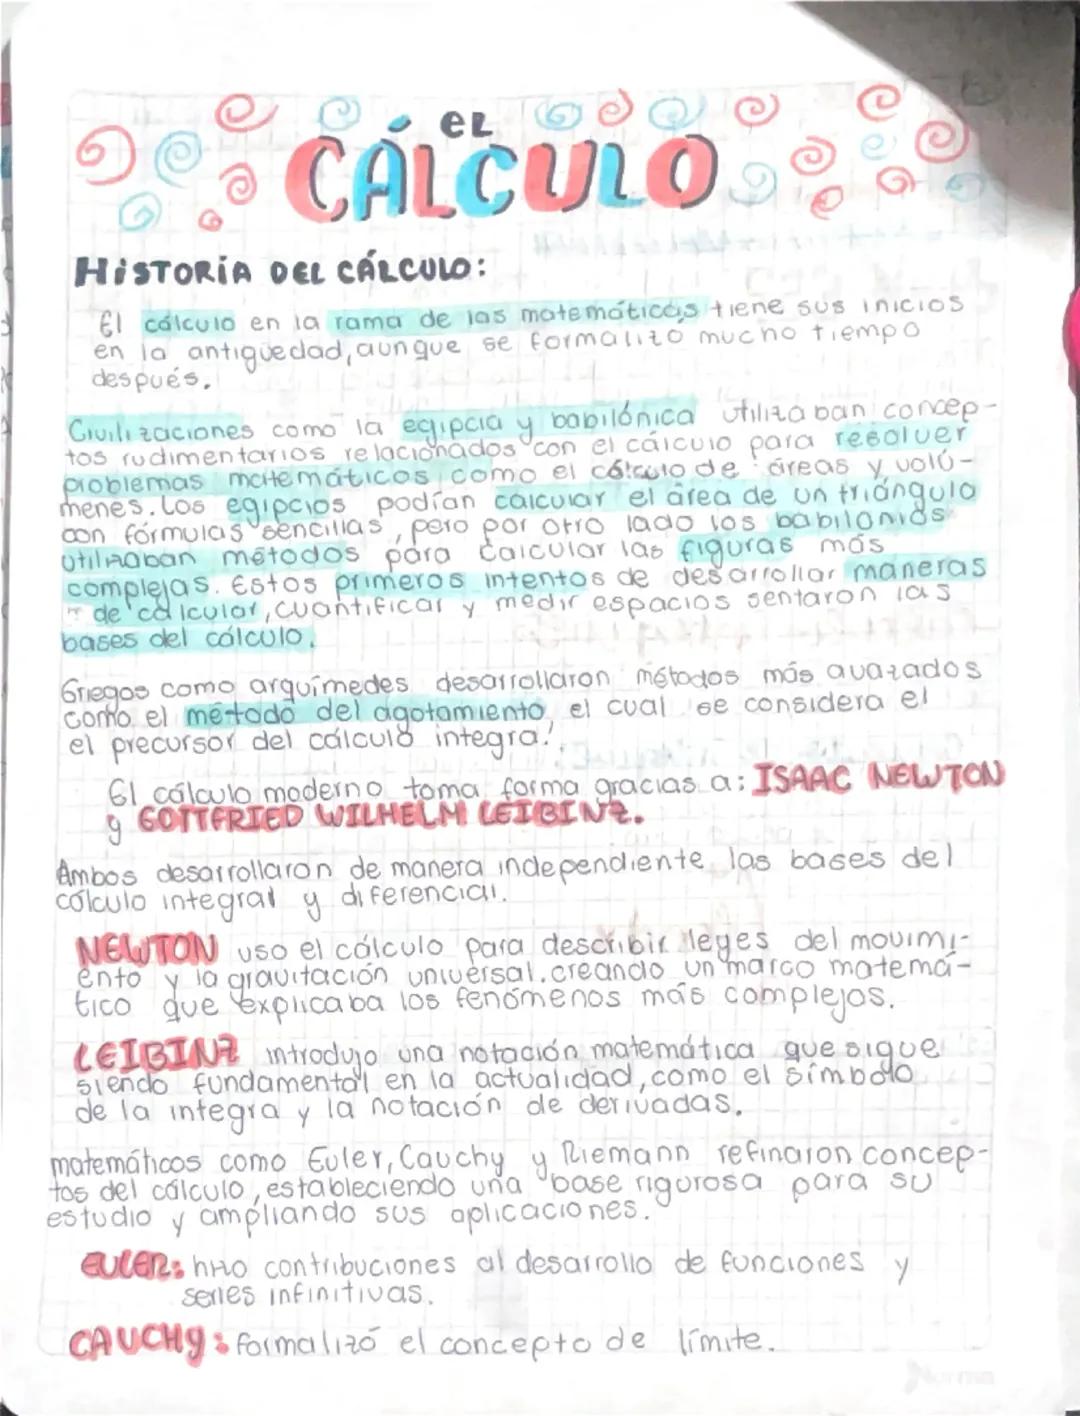 EL
CÁLCULO
HISTORIA DEL CÁLCULO:
El cálculo en la rama de las matemáticas tiene sus inicios
en la antigüedad, aunque se formalizó mucho tiempo
después.
Civilizaciones como la egipcia y babilónica utilizaban concep-
tos rudimentarios relacionados con el cálculo para resolver
problemas matemáticos como el cálculo de áreas y volú-
menes. Los egipcios podían calcular el área de un triángulo
con fórmulas sencillas, pero por otro lado los babilonios
utilizaban métodos para calcular las figuras más
complejas. Estos primeros intentos de desarrollar maneras
de calcular, cuantificar y medir espacios sentaron las
bases del cálculo.
Griegos como arquímedes desarrollaron métodos más avazados
como el método del agotamiento, el cual se considera el
el precursor del cálculo integral.
El cálculo moderno toma forma gracias a: ISAAC NEWTON
y GOTTFRIED WILHELM LEIBINZ.
Ambos desarrollaron de manera independiente las bases del
cálculo integral y diferencial.
NEWTON uso el cálculo para describir leyes del movimi-
ento y la gravitación universal. creando un marco matemá-
tico que explicaba los fenómenos más complejos.
LEIBINZ introdujo una notación matemática que sigue
siendo fundamental en la actualidad, como el símbolo
de la integra y la notación de derivadas.
matemáticos como Euler, Cauchy y Riemann refinaron concep-
tos del cálculo, estableciendo una base rigurosa para su
estudio y ampliando sus aplicaciones.
EULER: hizo contribuciones al desarrollo de funciones y
series infinitivas.
CAUCHY: formalizó el concepto de límite.
Norma